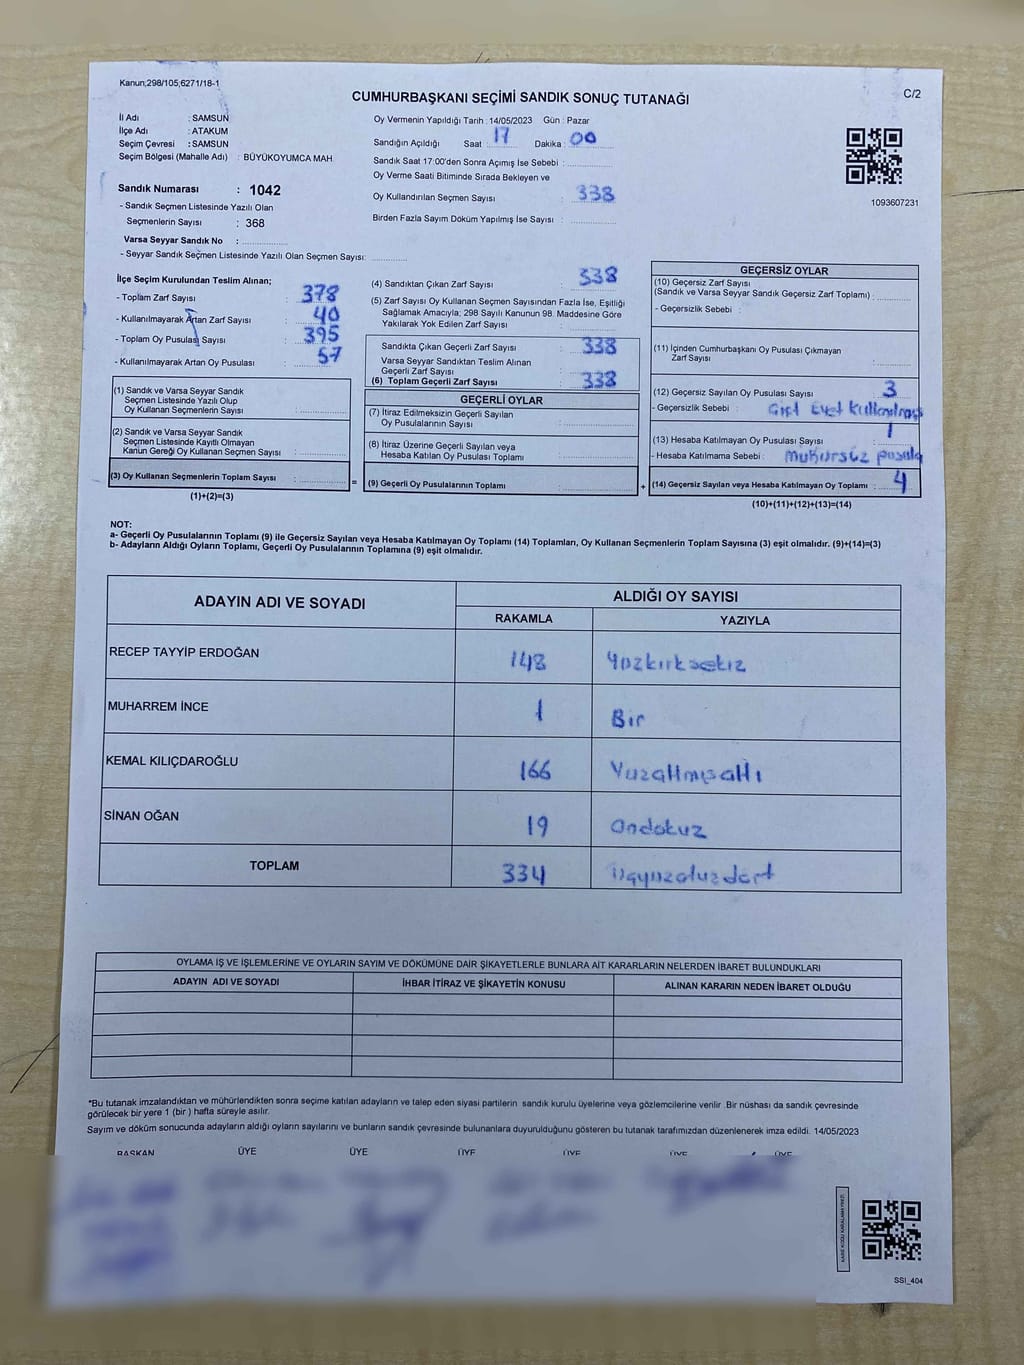 Kanun;298/105;6271/18-1
C/2
CUMHURBAŞKANI SEÇİMİ SANDIK SONUÇ TUTANAĞI
İl Adı : SAMSUN
İlçe Adı : ATAKUM
Seçim Çevresi : SAMSUN
Seçim Bölgesi (Mahalle Adı) : BÜYÜKOYUMCA MAH
Sandık Numarası : 1042
- Sandık Seçmen Listesinde Yazılı Olan
Seçmenlerin Sayısı : 368
Varsa Seyyar Sandık No :
- Seyyar Sandık Seçmen Listesinde Yazılı Olan Seçmen Sayısı:
Oy Vermenin Yapıldığı Tarih : 14/05/2023 Gün : Pazar
Sandığın Açıldığı Saat : 17 Dakika : 00
Sandık Saat 17:00'den Sonra Açımış İse Sebebi :
Oy Verme Saati Bitiminde Sırada Bekleyen ve
Oy Kullandırılan Seçmen Sayısı : 338
Birden Fazla Sayım Döküm Yapılmış İse Sayısı :
1093607231
İlçe Seçim Kurulundan Teslim Alınan;
- Toplam Zarf Sayısı : 378
- Kullanılmayarak Artan Zarf Sayısı : 40
- Toplam Oy Pusulası Sayısı : 395
- Kullanılmayarak Artan Oy Pusulası : 57
(1) Sandık ve Varsa Seyyar Sandık
Seçmen Listesinde Yazılı Olup
Oy Kullanan Seçmenlerin Sayısı :
(2) Sandık ve Varsa Seyyar Sandık
Seçmen Listesinde Kayıtlı Olmayan
Kanun Gereği Oy Kullanan Seçmen Sayısı :
(3) Oy Kullanan Seçmenlerin Toplam Sayısı :
(1)+(2)=(3)
(4) Sandıktan Çıkan Zarf Sayısı : 338
(5) Zarf Sayısı Oy Kullanan Seçmen Sayısından Fazla İse, Eşitliği
Sağlamak Amacıyla; 298 Sayılı Kanunun 98. Maddesine Göre
Yakılarak Yok Edilen Zarf Sayısı :
Sandıkta Çıkan Geçerli Zarf Sayısı : 338
Varsa Seyyar Sandıktan Teslim Alınan
Geçerli Zarf Sayısı :
(6) Toplam Geçerli Zarf Sayısı : 338
GEÇERLİ OYLAR
(7) İtiraz Edilmeksizin Geçerli Sayılan
Oy Pusulalarının Sayısı :
(8) İtiraz Üzerine Geçerli Sayılan veya
Hesaba Katılan Oy Pusulası Toplamı :
=
(9) Geçerli Oy Pusulalarının Toplamı :
+
GEÇERSİZ OYLAR
(10) Geçersiz Zarf Sayısı
(Sandık ve Varsa Seyyar Sandık Geçersiz Zarf Toplamı) :
- Geçersizlik Sebebi :
(11) İçinden Cumhurbaşkanı Oy Pusulası Çıkmayan
Zarf Sayısı :
(12) Geçersiz Sayılan Oy Pusulası Sayısı : 3
- Geçersizlik Sebebi : Çift Evet
(13) Hesaba Katılmayan Oy Pusulası Sayısı : 1
- Hesaba Katılmama Sebebi : Mühürsüz pusula
(14) Geçersiz Sayılan veya Hesaba Katılmayan Oy Toplamı : 4
(10)+(11)+(12)+(13)=(14)
NOT:
a- Geçerli Oy Pusulalarının Toplamı (9) ile Geçersiz Sayılan veya Hesaba Katılmayan Oy Toplamı (14) Toplamları, Oy Kullanan Seçmenlerin Toplam Sayısına (3) eşit olmalıdır. (9)+(14)=(3)
b- Adayların Aldığı Oyların Toplamı, Geçerli Oy Pusulalarının Toplamına (9) eşit olmalıdır.
ADAYIN ADI VE SOYADI
ALDIĞI OY SAYISI
RAKAMLA YAZIYLA
RECEP TAYYİP ERDOĞAN 148 Yüzkırksekiz
MUHARREM İNCE 1 Bir
KEMAL KILIÇDAROĞLU 166 Yüzaltmışaltı
SİNAN OĞAN 19 Ondokuz
TOPLAM 334 Üçyüzotuzdört
OYLAMA İŞ VE İŞLEMLERİNE VE OYLARIN SAYIM VE DÖKÜMÜNE DAİR ŞİKAYETLERLE BUNLARA AİT KARARLARIN NELERDEN İBARET BULUNDUKLARI
ADAYIN ADI VE SOYADI İHBAR İTİRAZ VE ŞİKAYETİN KONUSU ALINAN KARARIN NEDEN İBARET OLDUĞU
*Bu tutanak imzalandıktan ve mühürlendikten sonra seçime katılan adayların ve talep eden siyasi partilerin sandık kurulu üyelerine veya gözlemcilerine verilir .Bir nüshası da sandık çevresinde
görülecek bir yere 1 (bir ) hafta süreyle asılır.
Sayım ve döküm sonucunda adayların aldığı oyların sayılarını ve bunların sandık çevresinde bulunanlara duyurulduğunu gösteren bu tutanak tarafımızdan düzenlenerek imza edildi. 14/05/2023
BAŞKAN ÜYE ÜYE ÜYE ÜYE ÜYE ÜYE
KARE KODU KARALAMAYINIZ!
SSI_404